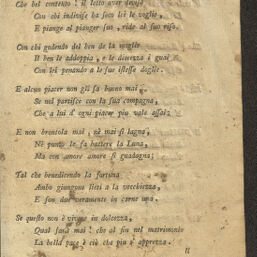 Che bel contento! il letto aver
Con chi indivise ha seco lei le voglie,
E piange al pianger suo, ride al suo riso.
Con chi godendo del ben de la moglie
Il ben le addoppia, e le dimezza i guai
Con lei penando a le sue istesse doglie.
E alcun piacer non gli sa buono mai
Se nol partisce con la sua compagna,
Che a lui d'ogni piacer più vale assai;
E non brontola mai, nè mai si lagna,
Nè punto le fa battere la Luna,
Ma con amore amore si guadagna;
Tal che benedicendo la fortuna
Ambo giungono lieti a la vecchiezza,
E son due veramente in carne una.
Se questo non è vivere in dolcezza,
Qual sarà mai! che al fin nel matrimonio
La bella pace è ciò che più s'apprezza.
Il